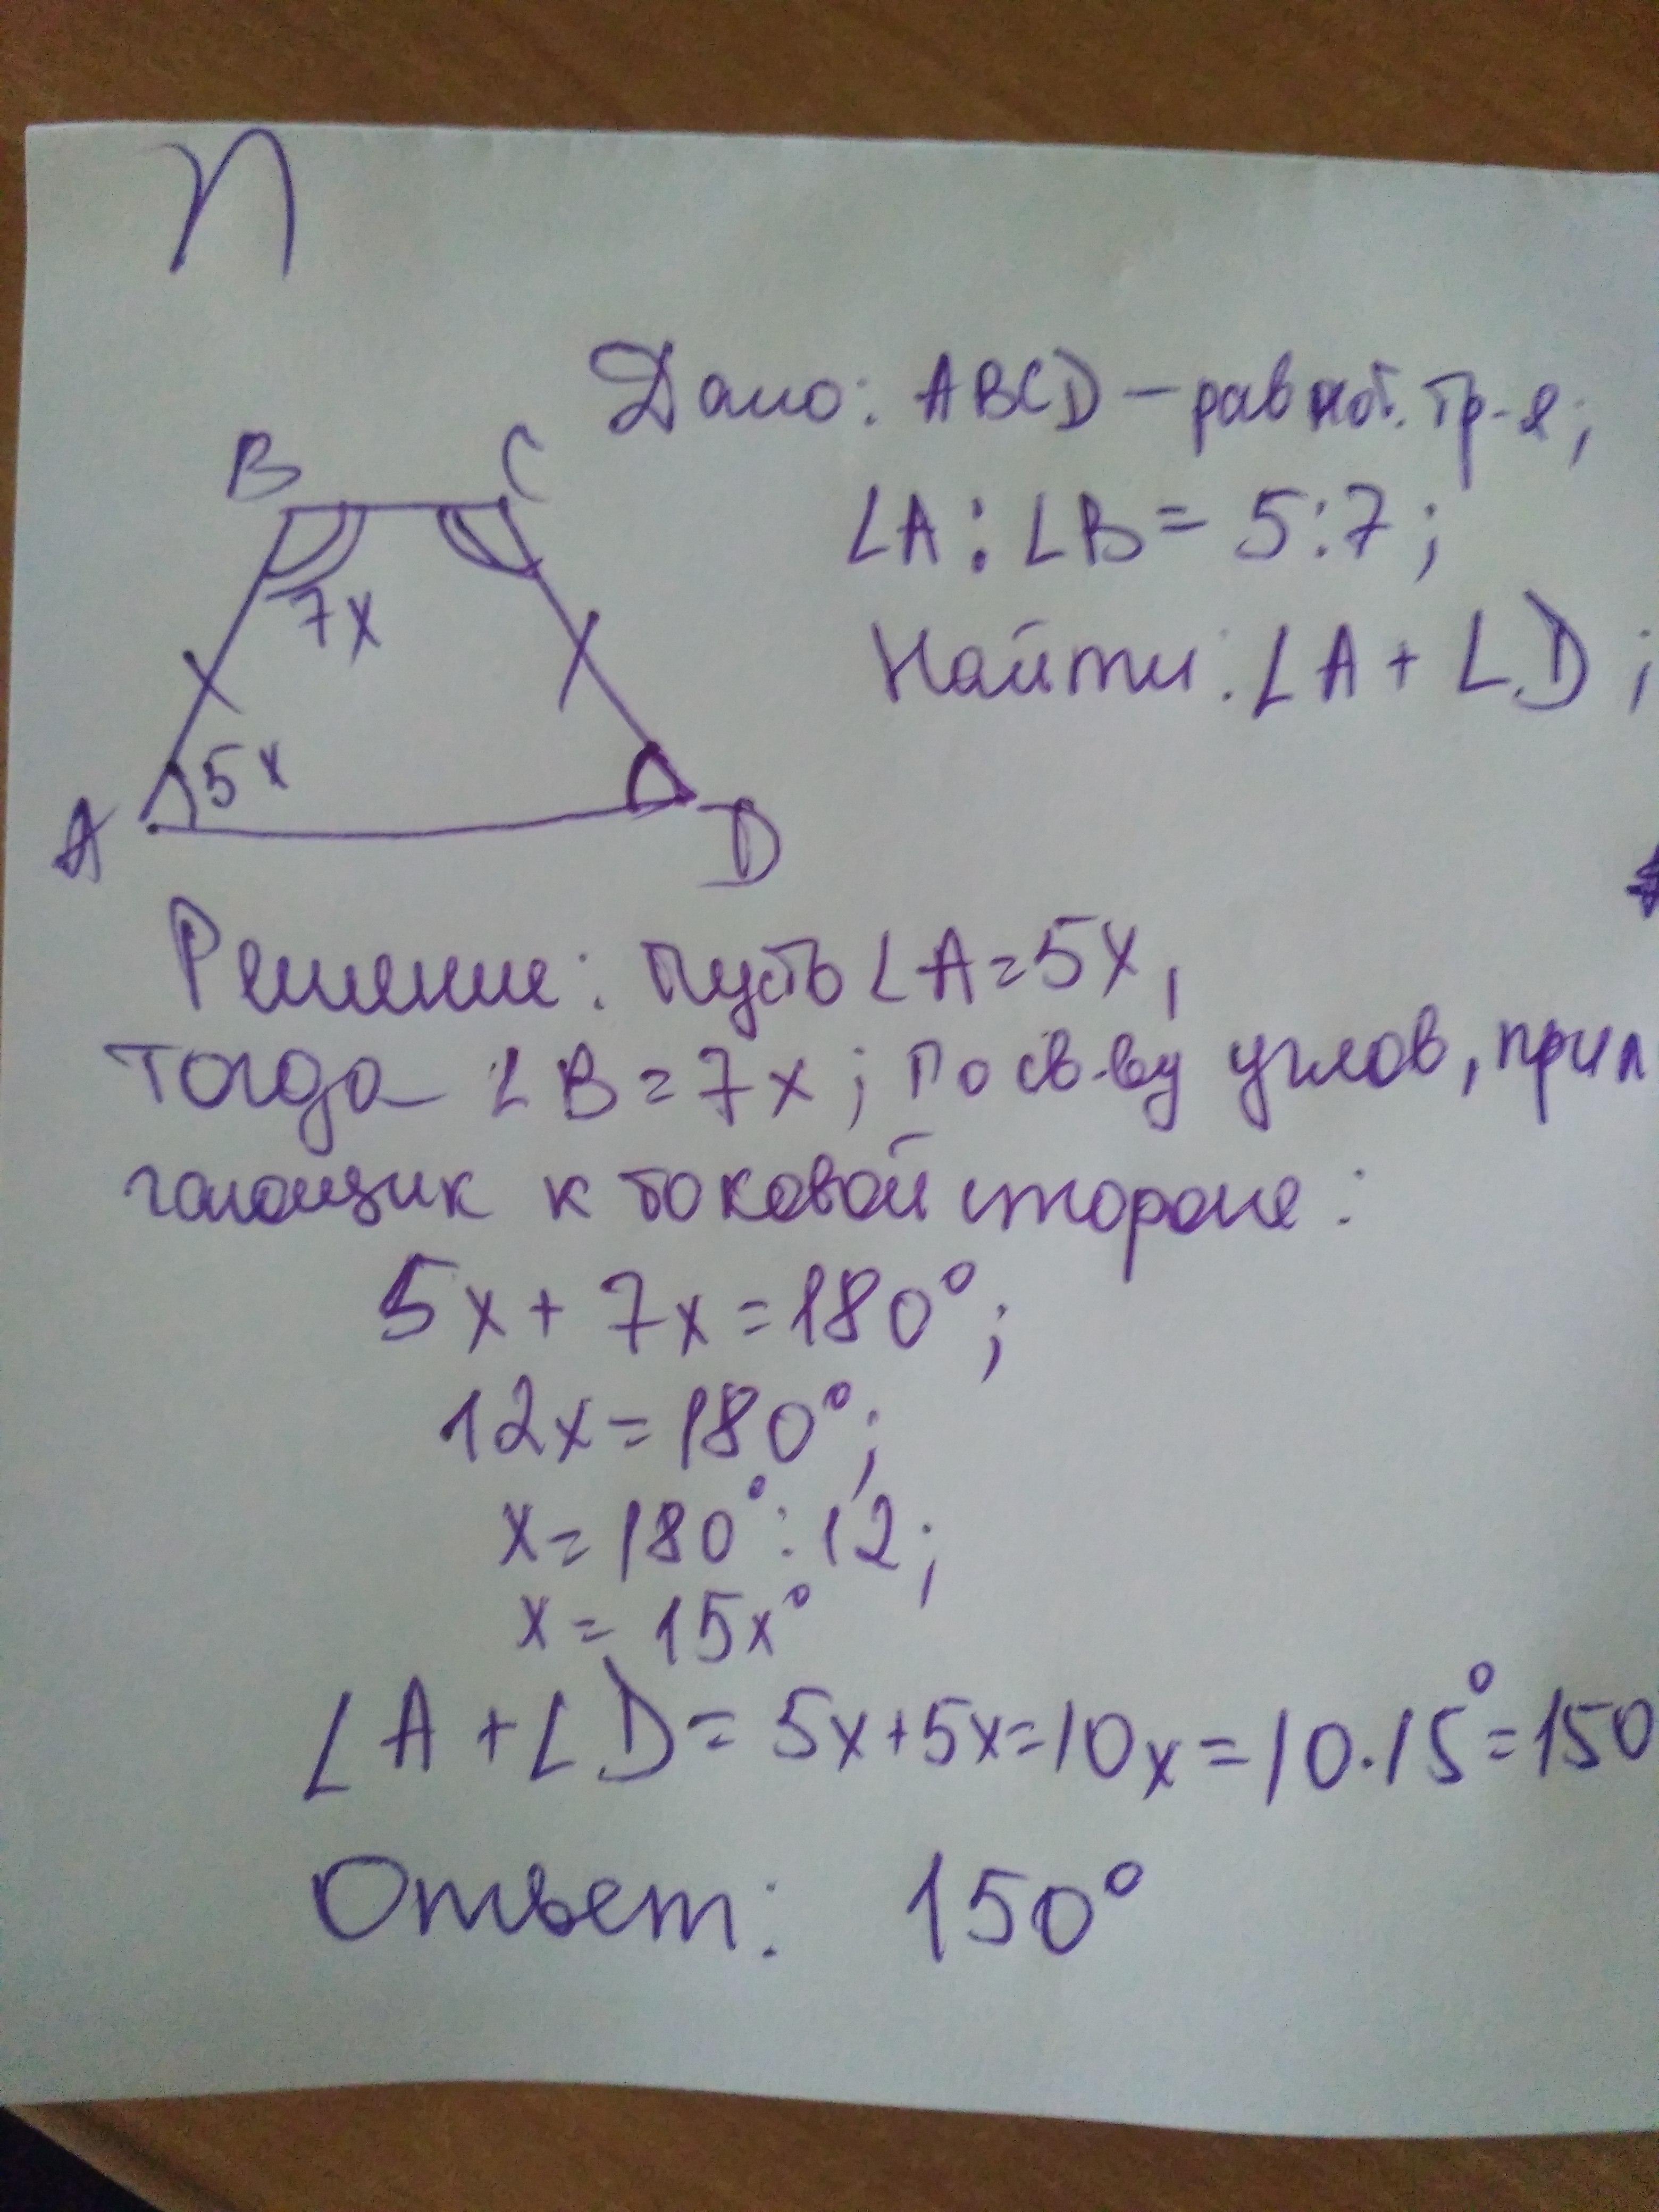 П
Дано: ABCD – равноб. тр-я;
∠A : ∠B = 5:7;
Найти: ∠A + ∠D;
B C
7x
5x
A D
Решение: Пусть ∠A = 5x,
тогда ∠B = 7x; По св-ву углов, прил
гающих к боковой стороне:
5x + 7x = 180°;
12x = 180°;
x = 180° : 12;
x = 15x°
∠A + ∠D = 5x + 5x = 10x = 10 · 15° = 150
Ответ: 150°